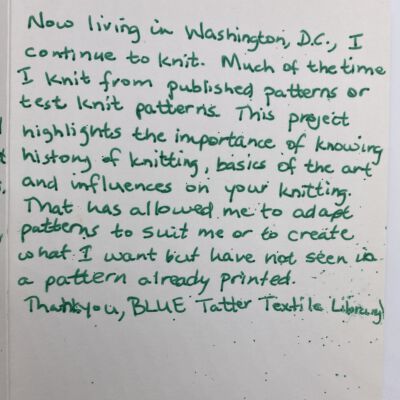 Now living in Washington, D.C., I
continue to knit. Much of the time
I knit from published patterns or
test knit patterns. This project
highlights the importance of knowing
history of knitting, basics of the art
and influences on your knitting.
That has allowed me to adapt
patterns to suit me or to create
what I want but have not seen in
a pattern already printed.
Thank you, BLUE Tatter Textile Library!